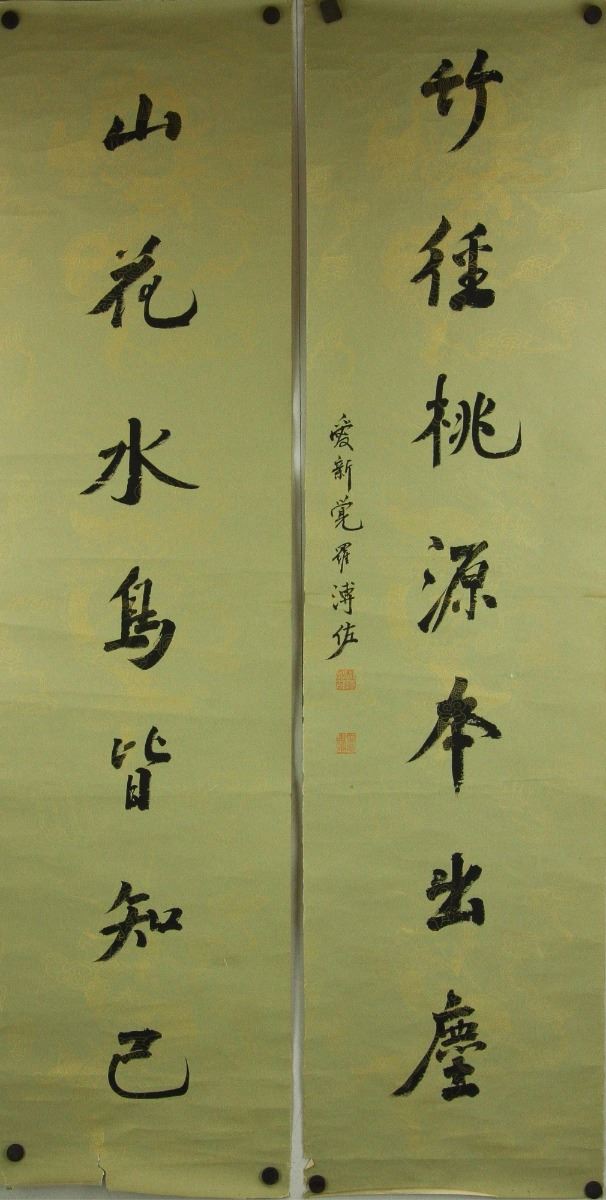 竹径桃源本出塵
愛新覚羅溥佐
山花水鳥皆知己